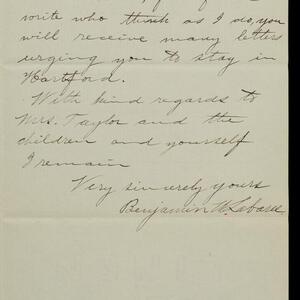 write who think as I do, you
will receive many letters
urging you to stay in
Hartford.
With kind regards to
Mrs. Taylor and the
children and yourself
I remain
Very sincerely yours
Benjamin W. Labaree